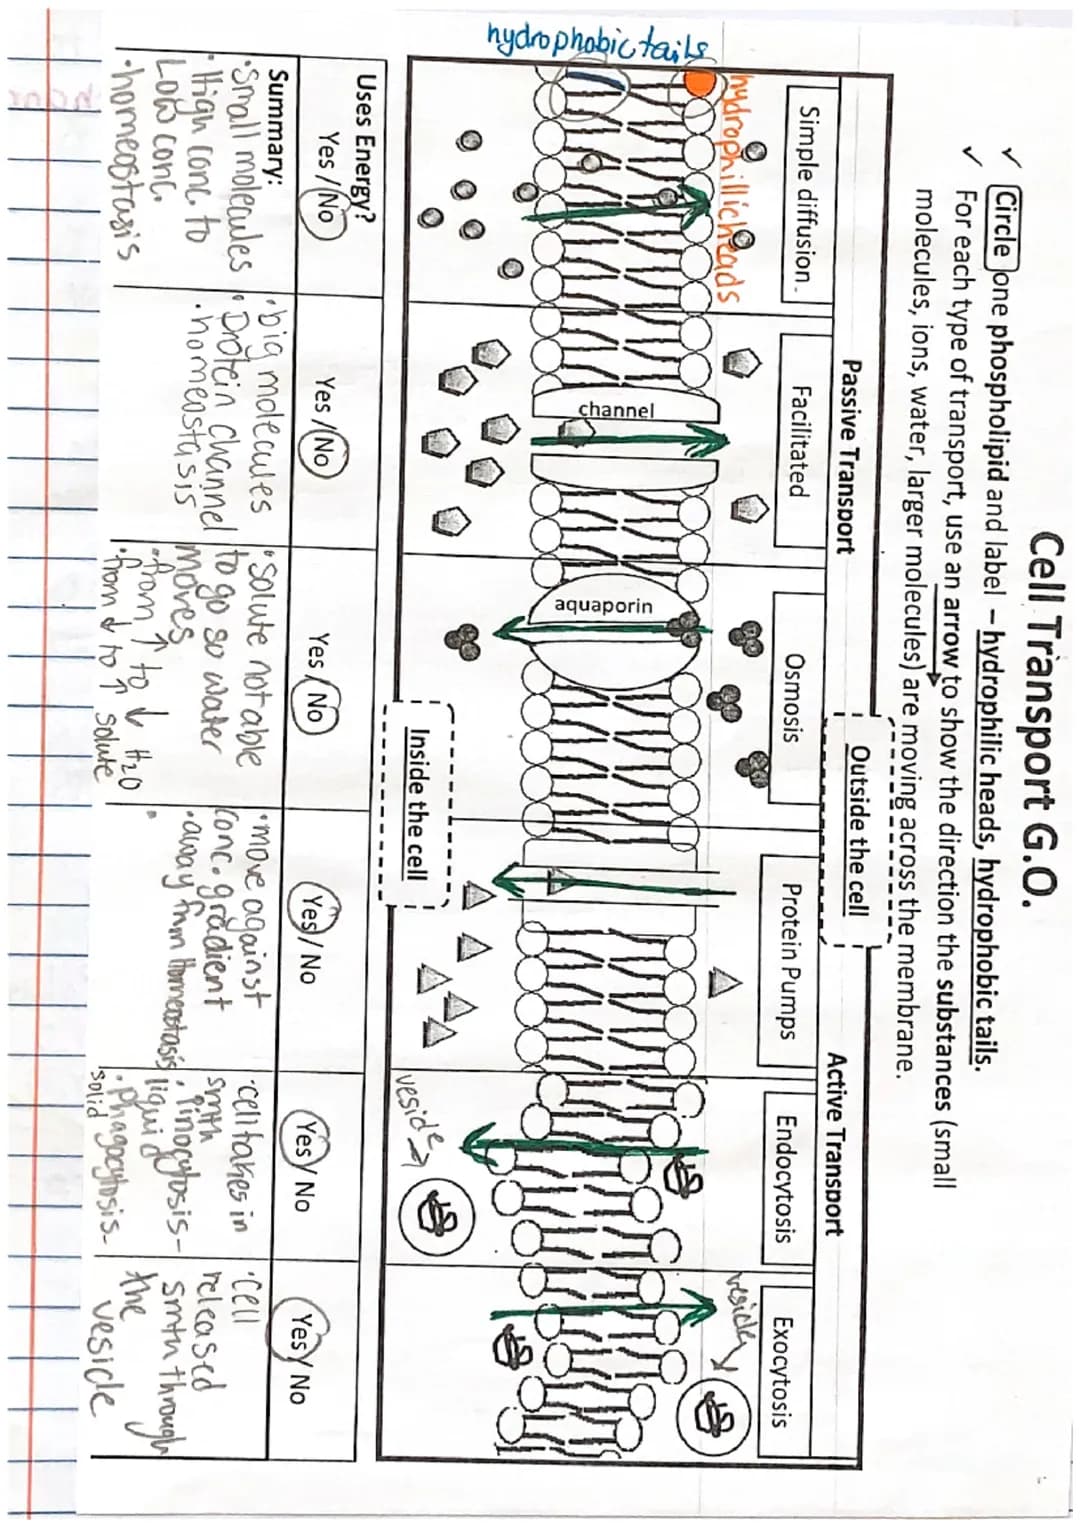 Cell Transport G.O.
✓ Circle one phospholipid and label – hydrophilic heads, hydrophobic tails.
✓ For each type of transport, use an arrow to show the direction the substances (small
molecules, ions, water, larger molecules) are moving across the membrane.
Outside the cell
Passive Transport
Active Transport
Simple diffusion
Facilitated
Osmosis
Protein Pumps
Endocytosis
Exocytosis
hydrophillic heads
hydrophobic tails
channel
aquaporin
vesicle
vesicle
Inside the cell
Uses Energy?
Yes / No
Yes / No
Yes / No
Yes / No
Yes / No
Yes / No
Summary:
• Small molecules
• High conc to
Low conc.
• homeostasis
• big molecules
• protein channel
• homeostasis
• solute not able
to go so water
moves
• from ↑ to ↓ H2O
• from ↓ to ↑ solute
• move against
conc. gradient
• away from homeostasis
• cell takes in
smth
• pinocytosis –
liquid
• phagocytosis –
solid
• cell
released
smth through
the
vesicle